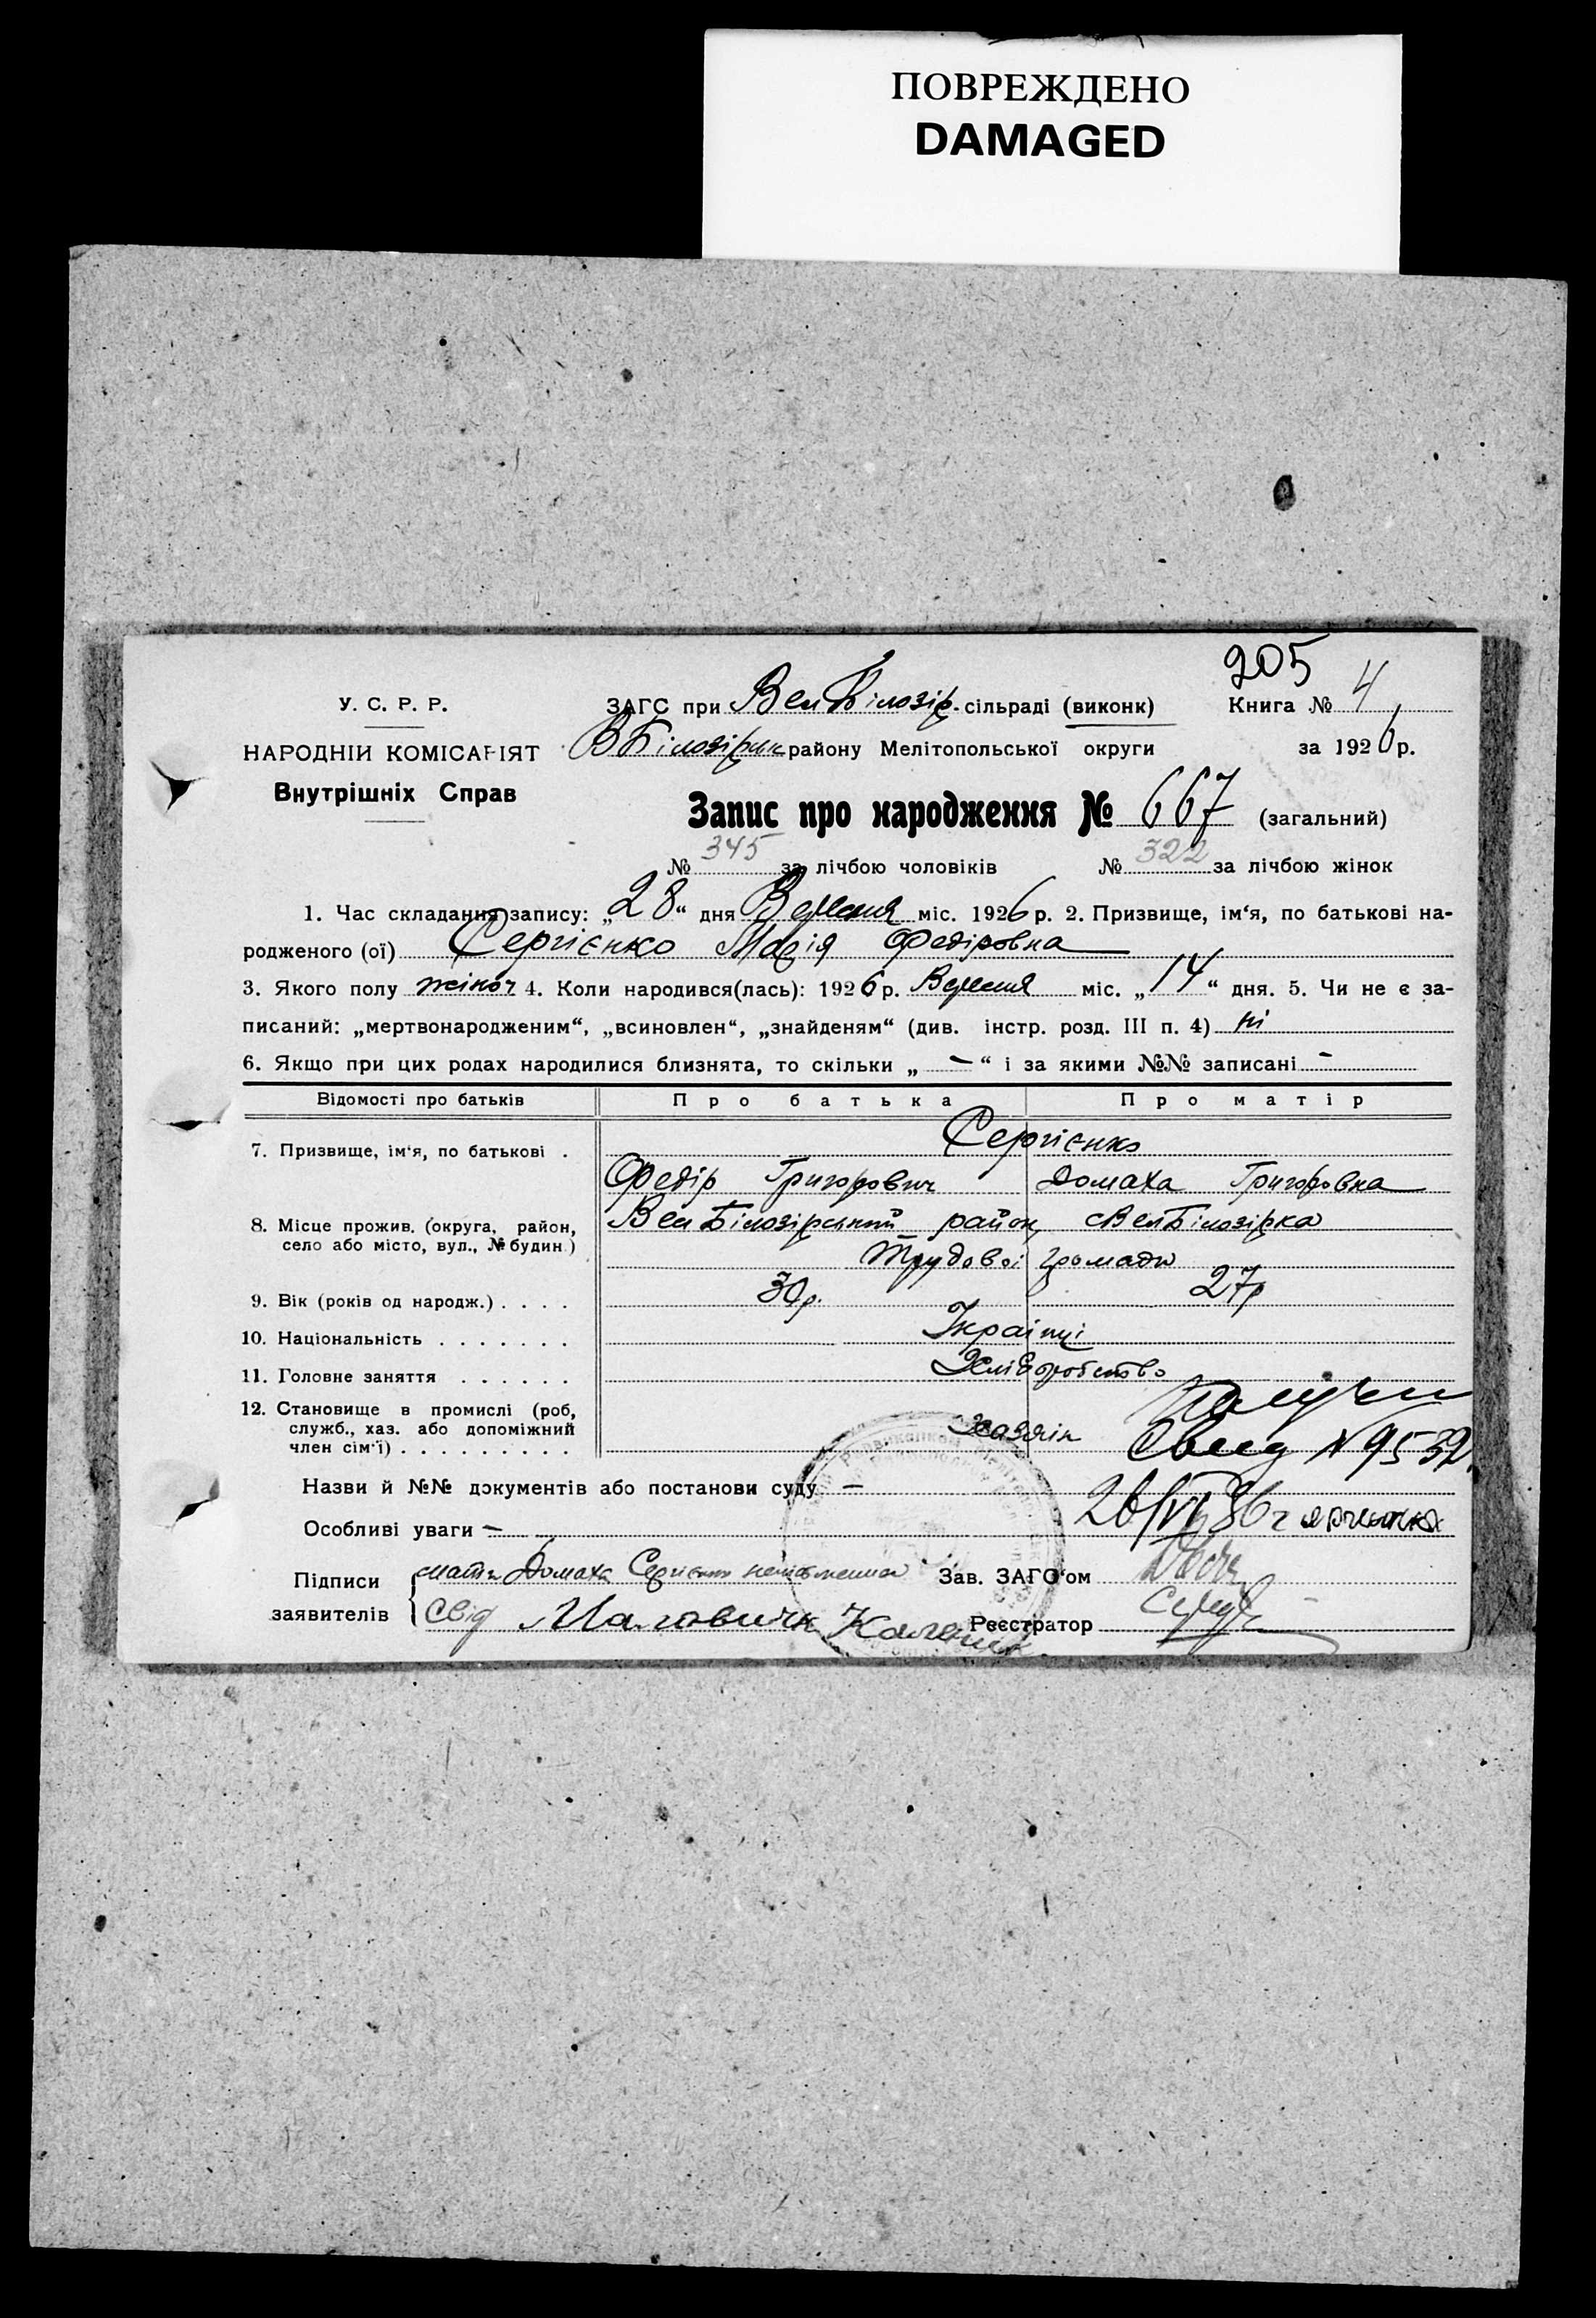 ПОВРЕЖДЕНО
DAMAGED
205
У. С. Р. Р.
ЗАГС при Вел Білозір. сільраді (виконк)
Книга № 4
НАРОДНІЙ КОМІСАРІЯТ
В Білозірськ району Мелітопольської округи
за 1926 р.
Внутрішніх Справ
Запис про народження № 667 (загальний)
№ 345 за лічбою чоловіків № 322 за лічбою жінок
1. Час складання запису: „28“ дня Вересня міс. 1926 р. 2. Призвище, ім‘я, по батькові на-
родженого (ої) Сергієнко Марія Федіровна
3. Якого полу жіноч 4. Коли народився(лась): 1926 р. Вересня міс. „14“ дня. 5. Чи не є за-
писаний: „мертвонародженим“, „всиновлен“, „знайденям“ (див. інстр. розд. III п. 4) ні
6. Якщо при цих родах народилися близнята, то скільки „ — “ і за якими №№ записані -
Відомості про батьків
Про батька
Про матір
7. Призвище, ім‘я, по батькові .
Сергієнко
Федір Григорович
Домаха Григоровна
8. Місце прожив. (округа, район,
село або місто, вул., № будин.)
Вел Білозірський район, с Вел Білозірка
Трудової громади
9. Вік (років од народж.) . . . .
30р.
27р
10. Національність . . . . . . .
Українці
11. Головне заняття . . . . . .
Хліборобство
12. Становище в промислі (роб,
служб., хаз. або допоміжний
член сім‘ї) . . . . . . . . .
Хазяїн
Свид N 9532
Назви й №№ документів або постанови суду —
26/VI 36 г
Особливі уваги —
Підписи
заявителів
мати Домаха Сергієнко неписьменна
Зав. ЗАГС‘ом
свід Маловичк Каленик
Реєстратор